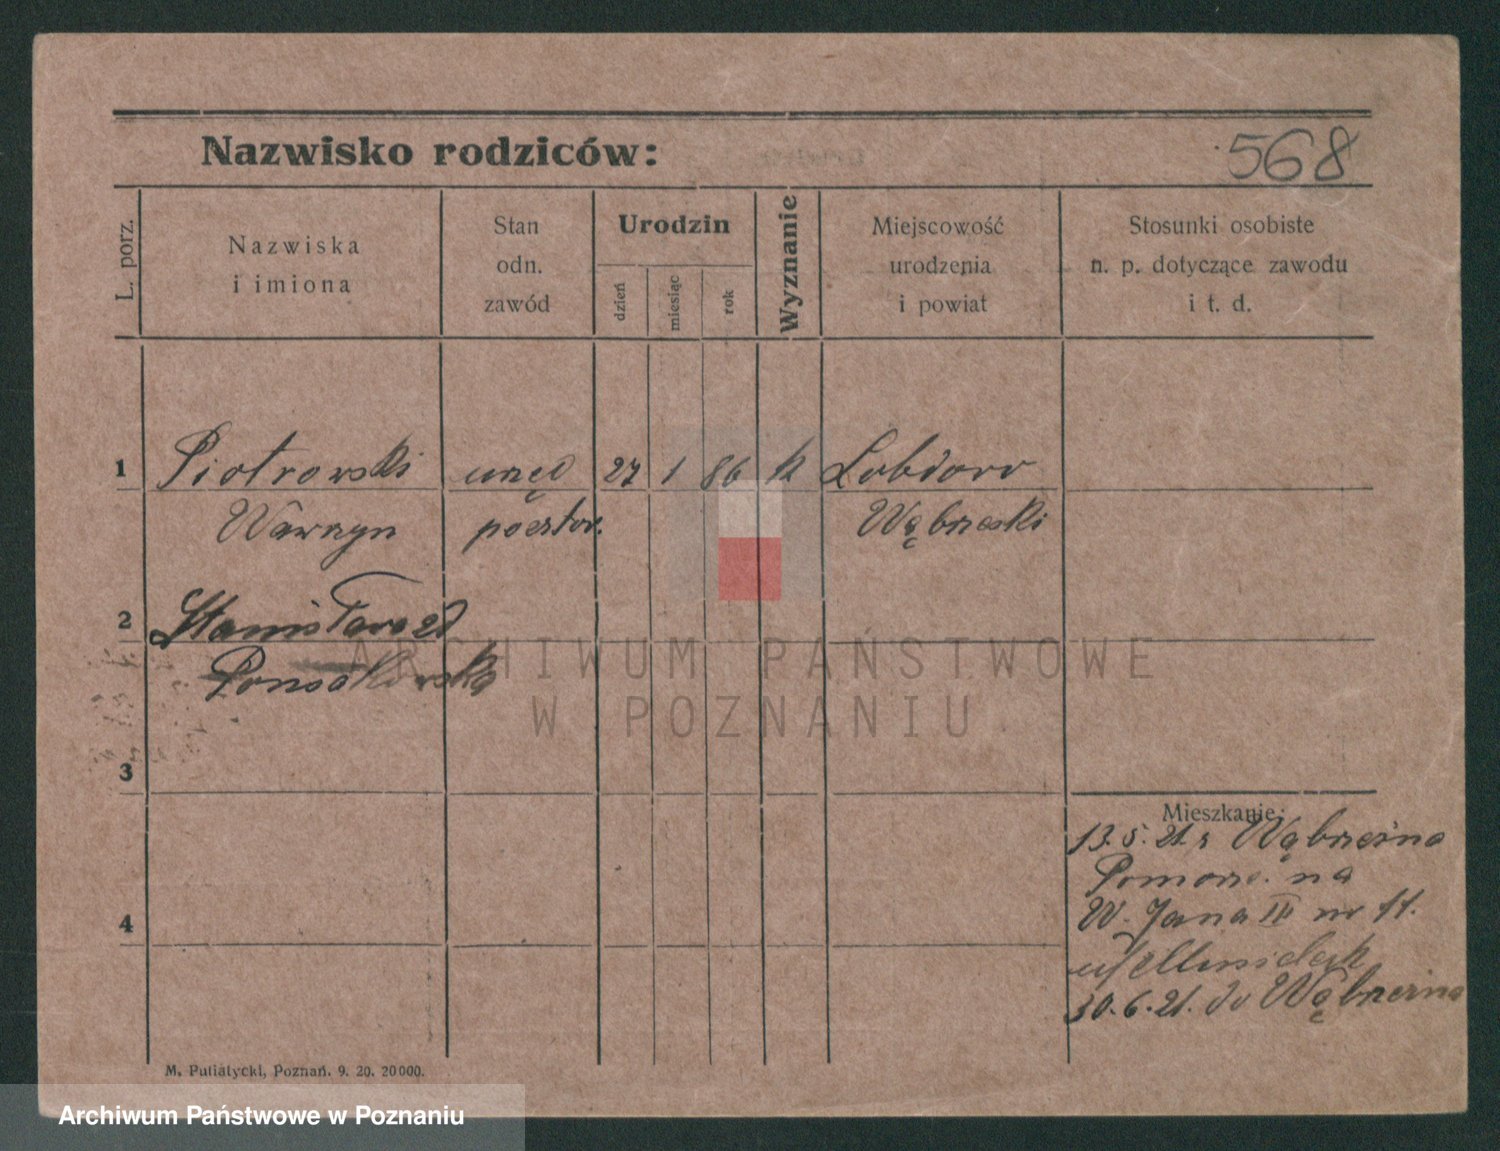 Nazwisko rodziców:
568
L. porz.
Nazwiska
i imiona
Stan
odn.
zawód
Urodzin
dzień
miesiąc
rok
Wyznanie
Miejscowość
urodzenia
i powiat
Stosunki osobiste
n. p. dotyczące zawodu
i t. d.
1 Piotrowski urzęd 27 1 86 k Lobdowo
Wawrzyn pocztow. Wąbrzeski
2
3
4
Mieszkanie:
13.5.21. z Wąbrzeźna
Pomorze. na
W. Jana III nr 11.
30.6.21. do Wąbrzeźna
M. Putiatycki, Poznań. 9. 20. 20000.
ARCHIWUM PAŃSTWOWE
W POZNANIU
Archiwum Państwowe w Poznaniu